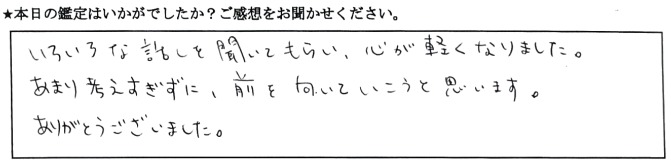 ★本日の鑑定はいかがでしたか？ご感想をお聞かせください。
いろいろな話しを聞いてもらい、心が軽くなりました。
あまり考えすぎずに、前を向いていこうと思います。
ありがとうございました。